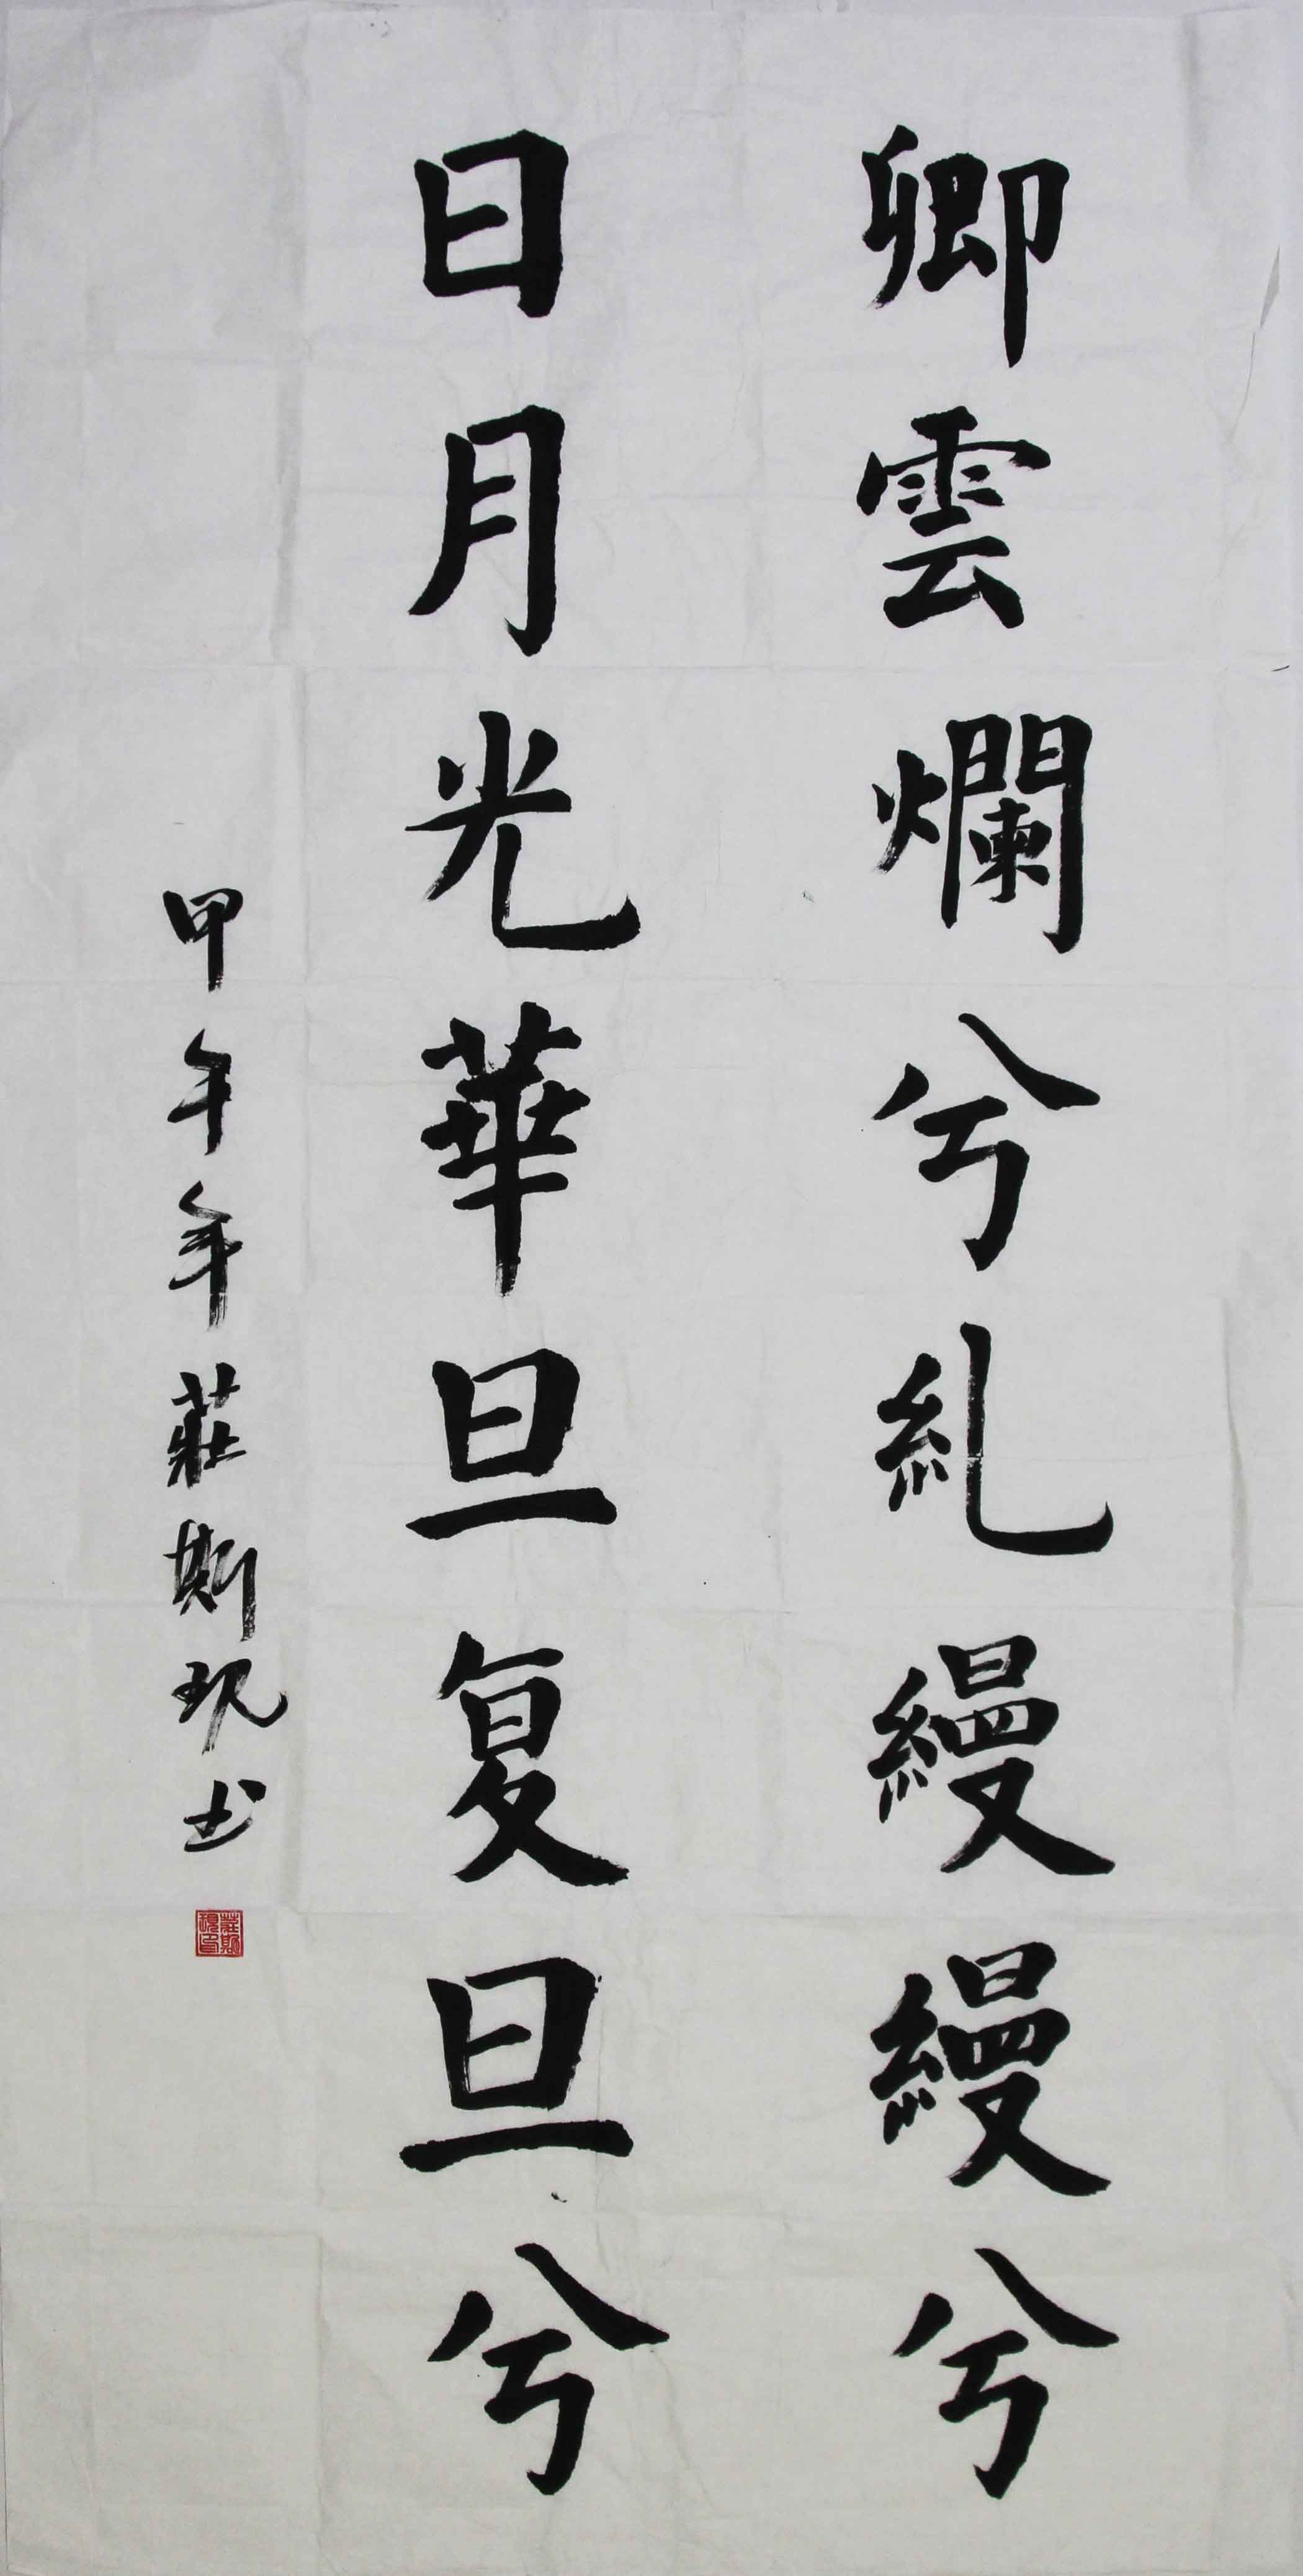 卿雲爛兮糺縵縵兮
日月光華旦复旦兮
甲午年莊斯琓书